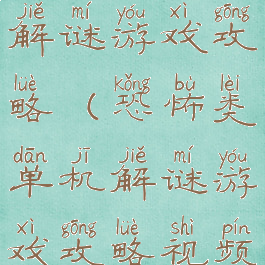 jiě mí yóu xì gōng
解谜游戏攻
lüè kǒng bù lèi
略（恐怖类
dān jī jiě mí yóu
单机解谜游
xì gōng lüè shì pín
戏攻略视频